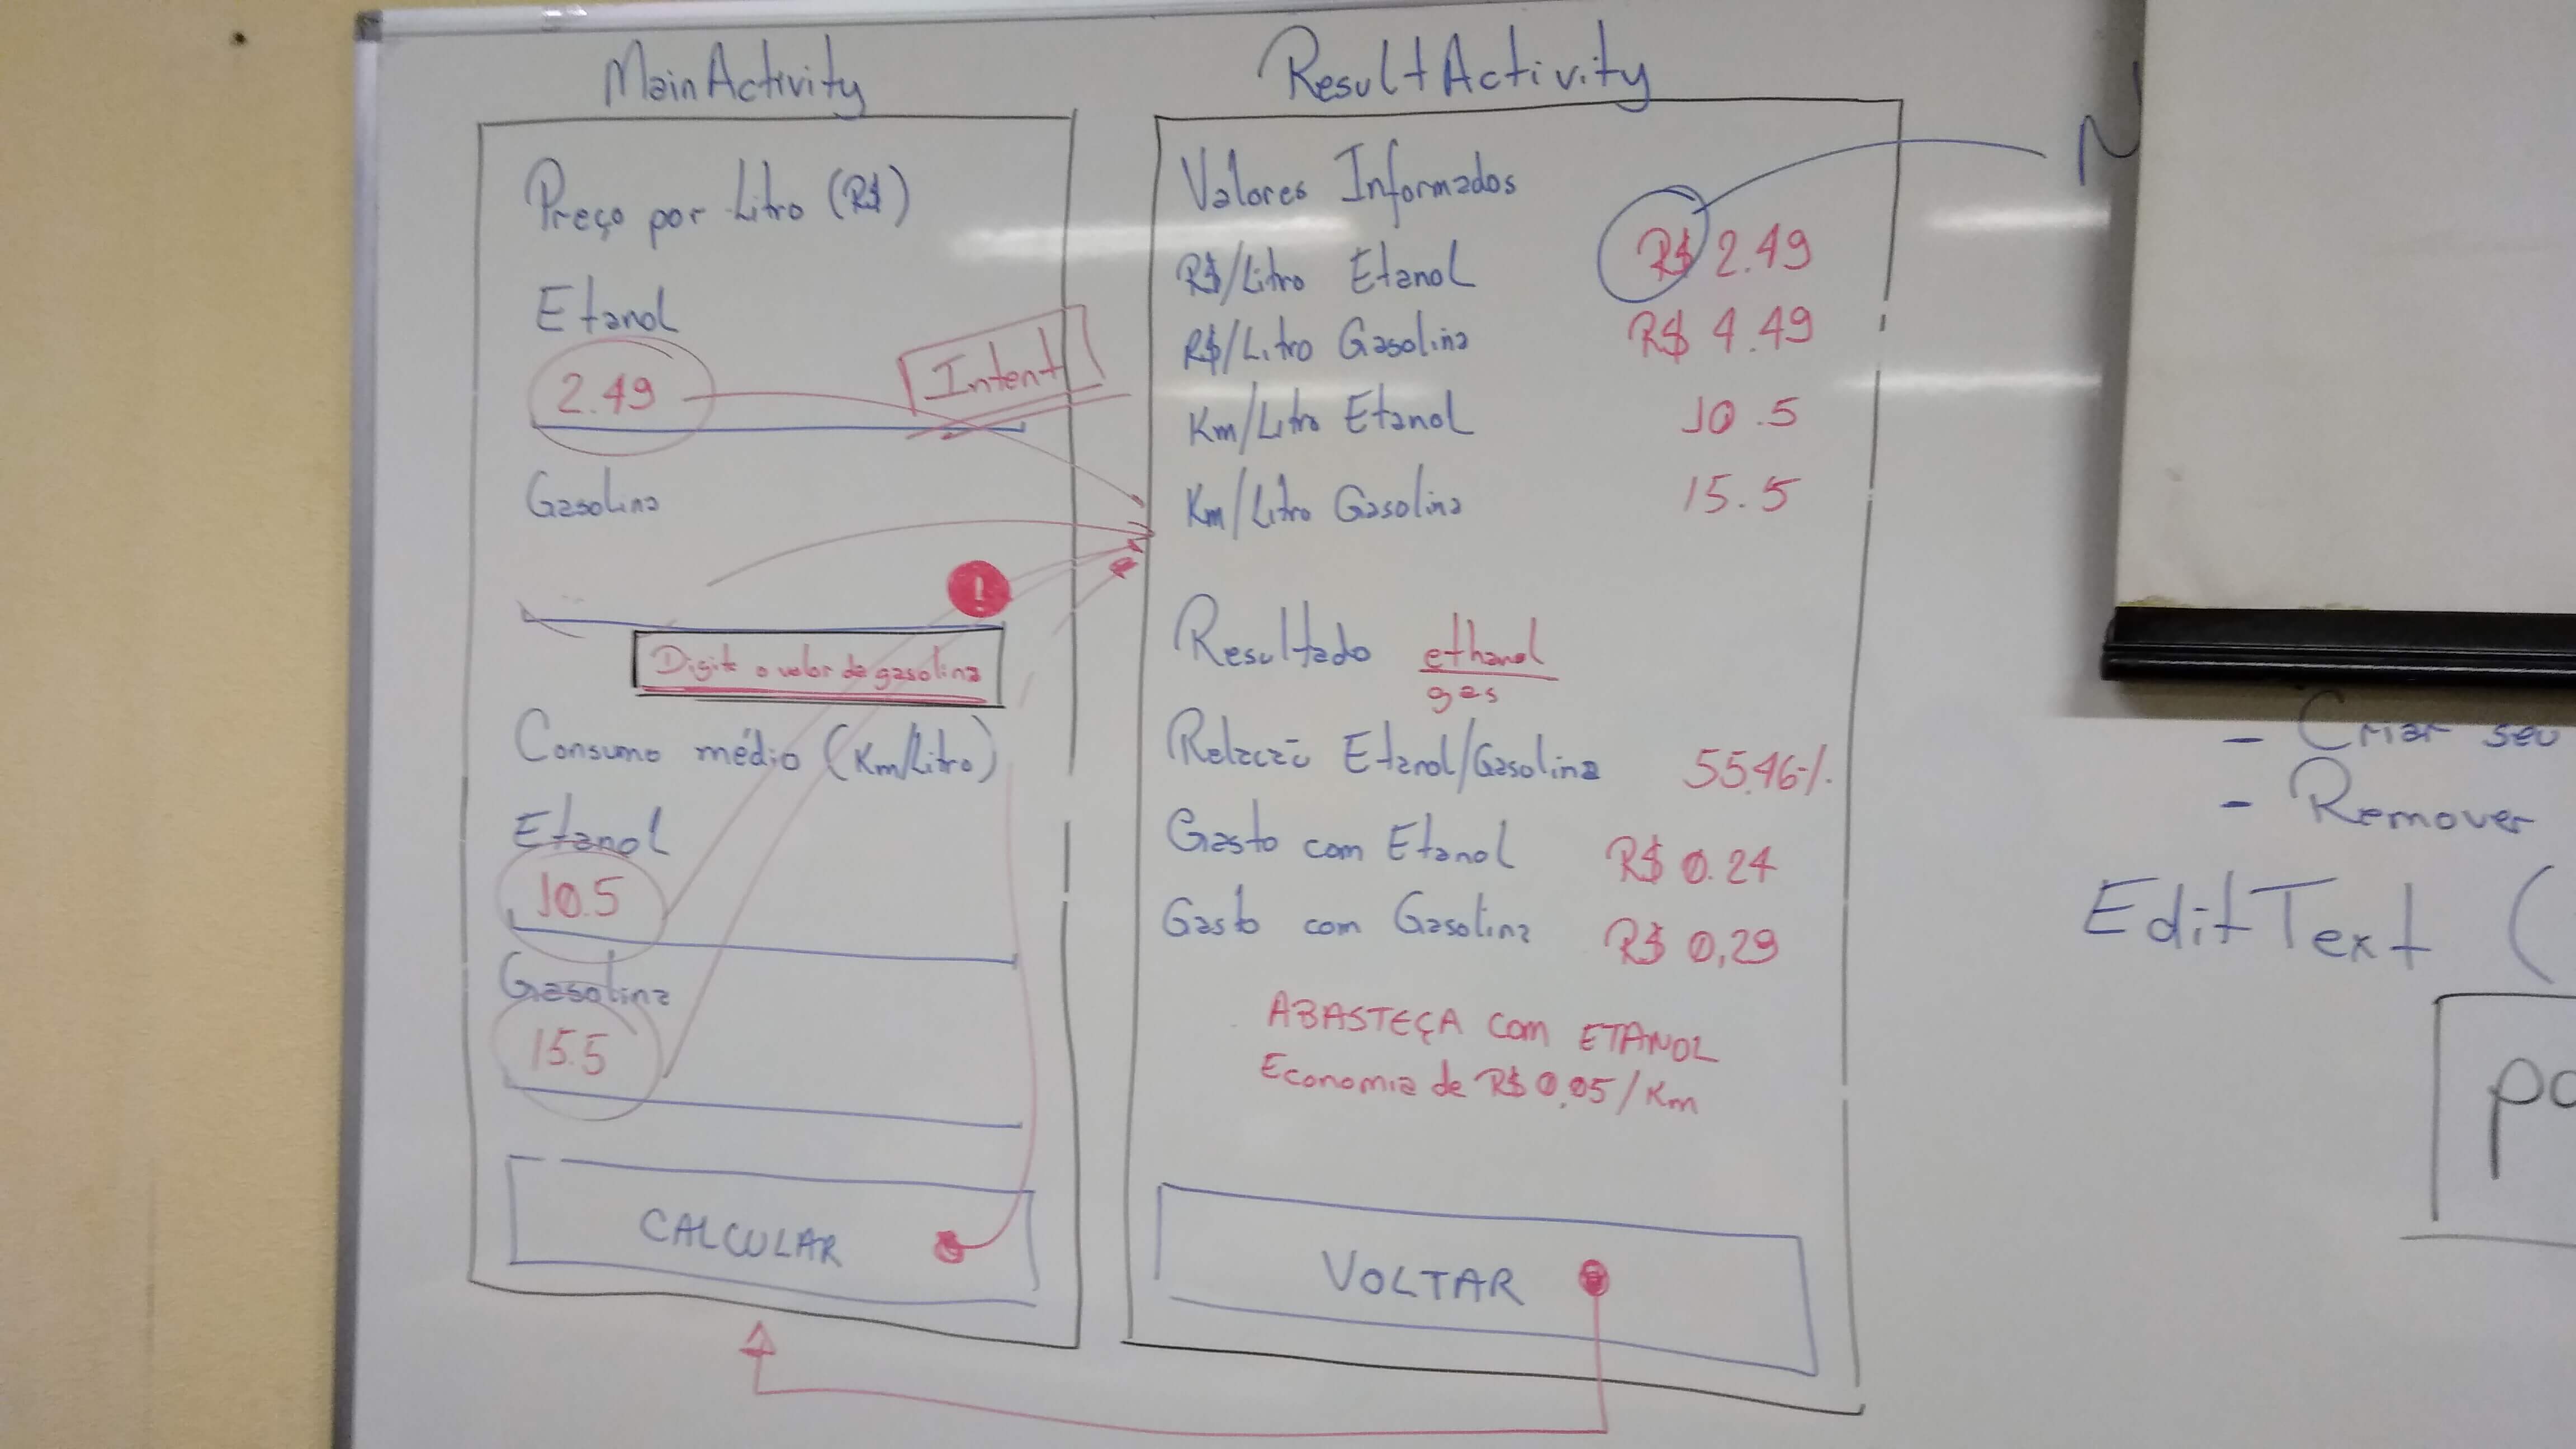 MainActivity
Preço por Litro (R$)
Etanol
2.49
Intent
Gasolina
!
Digite o valor da gasolina
Consumo médio (Km/Litro)
Etanol
10.5
Gasolina
15.5
CALCULAR
ResultActivity
Valores Informados
R$/Litro Etanol R$ 2.49
R$/Litro Gasolina R$ 4.49
Km/Litro Etanol 10.5
Km/Litro Gasolina 15.5
Resultado ethanol
gas
Relação Etanol/Gasolina 55,46%
Gasto com Etanol R$ 0.24
Gasto com Gasolina R$ 0,29
ABASTEÇA com ETANOL
Economia de R$ 0,05/Km
VOLTAR
N
- Criar seu
- Remover
EditText (
po